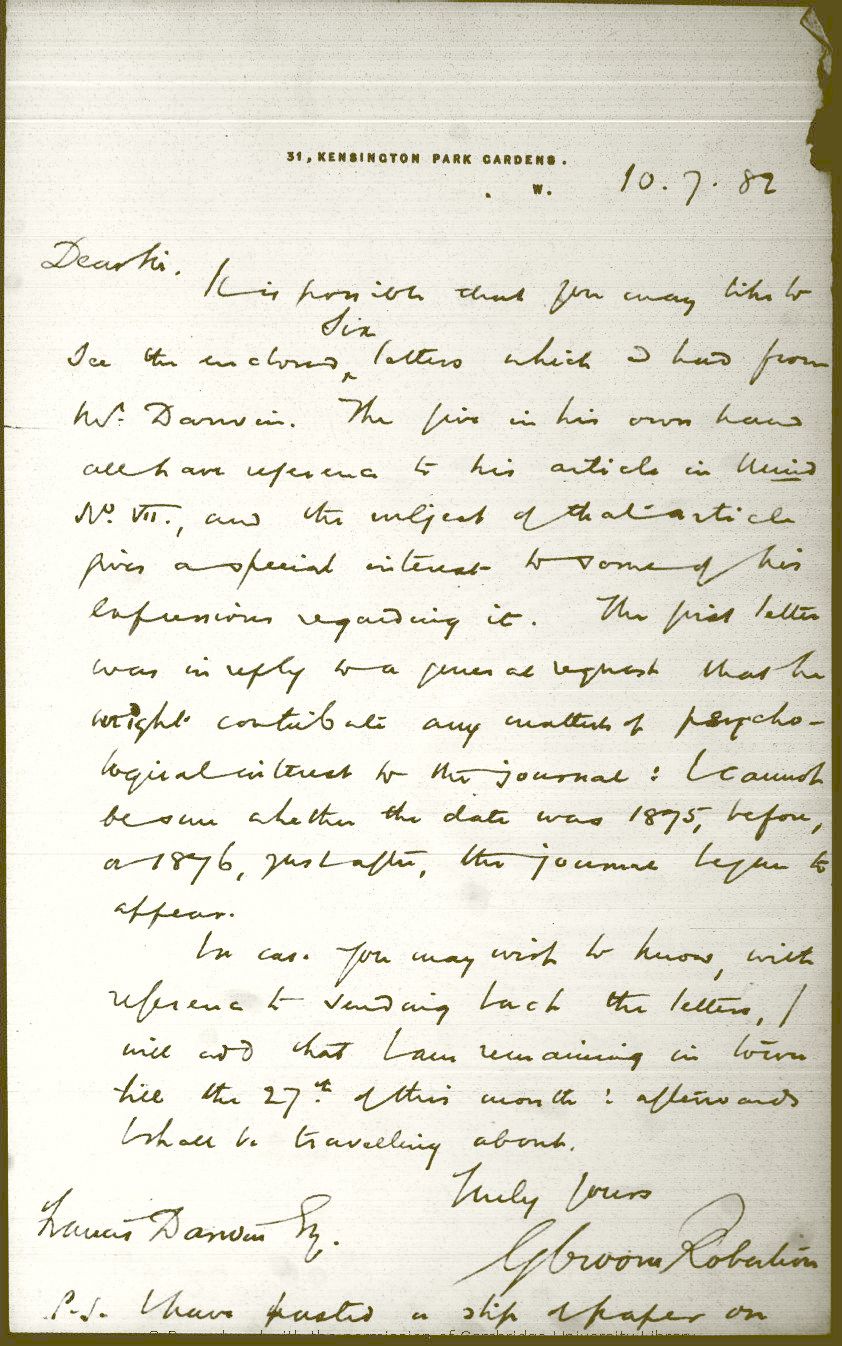 31, KENSINGTON PARK GARDENS.
W.
10.7.82
Dear Sir.
It is possible that you may like to
Six
see the enclosed ‸ letters which I had from
Mr. Darwin. The five in his own hand
all have reference to his article in Mind
No. VII., and the subject of that article
gives a special interest to some of his
expressions regarding it. The first letter
was in reply to a general request that he
might contribute any matters of psycho-
logical interest to the journal: I cannot
be sure whether the date was 1875, before,
or 1876, just after, the journal began to
appear.
In case you may wish to know, with
reference to sending back the letters, I
will add that I am remaining in town
till the 27th of this month: afterwards
I shall be travelling about.
Truly yours
Francis Darwin Esq.
G Croom Robertson
P.S. I have pasted a slip of paper on
© Reproduced with the permission of Cambridge University Library